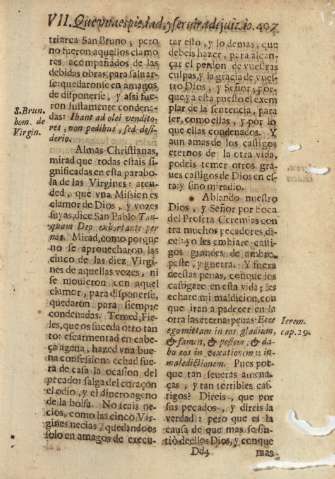 VII. Que una es piedad, y ser ira de juicio. 407
triarca San Bruno, pero
no fueron aquellos clamo
res acompañados de las
debidas obras para salvar-
se: quedaronse en amagos,
de disponerse, y assi fue-
ron justamente condena-
das: Ibant ad olei vendito
res, non pedibus, sed desi-
derio.
S. Brun.
hom. de
Virgin.
Almas Christianas,
mirad que todas estais si-
gnificadas en esta parabo-
la de las Virgines: aten-
ded, que vna Mission es
clamor de Dios, y vozes
suyas, dize San Pablo Tan-
quam Deo exhortante per
nos. Mirad, como porque
no se aprovecharon las
cinco de las diez Virgi-
nes de aquellas vozes, ni
se movieron con aquel
clamor, para disponerse,
quedaron para siempre
condenadas. Temed, Fie-
les, que os suceda otro tan
to: escarmentad en cabe-
ça agena, hazed vna bue-
na confession: echad fue-
ra de casa la ocasion del
pecado: salga del coraçon
el odio, y el dinero ageno
de la bolsa. No seais ne-
cios, como las cinco Vir-
gines necias, quedandoos
solo en amagos de execu-
tar esto, y lo demas, que
debeis hazer, para alcan-
çar el perdon de vuestras
culpas, y la gracia de vues-
tro Dios, y Señor, por-
que ya esta puesto el exem
plar de la sentencia, para
temer, como ellas, y por lo
que ellas condenados. Y
aun amas de los castigos
eternos de la otra vida,
podeis temer otros gra-
ues castigos de Dios en es-
ta, y sino miradlo.
Abiendo nuestro
Dios, y Señor por boca
del Profeta Ieremias con
tra muchos pecadores, di-
ze: yo les embiare casti-
gos grandes, de ambre,
peste, y guerra. Y fuera
destas penas, con que los
castigare en esta vida; les
echare mi maldicion, con
que iran a padecer en la
otra las eternas penas: Ecce
ego mittam in eos gladium,
& famem, & pestem, & da-
bo eos in vexationem in
maledictionem. Pues por-
que tan seueras amena-
ças, y tan terribles cas-
tigos? Direis, que por
sus pecados, y direis la
verdad: pero que es la
causa de que mas se sin-
tiò dellos Dios, y con que
Ierem.
cap. 29.
Dd4 mas